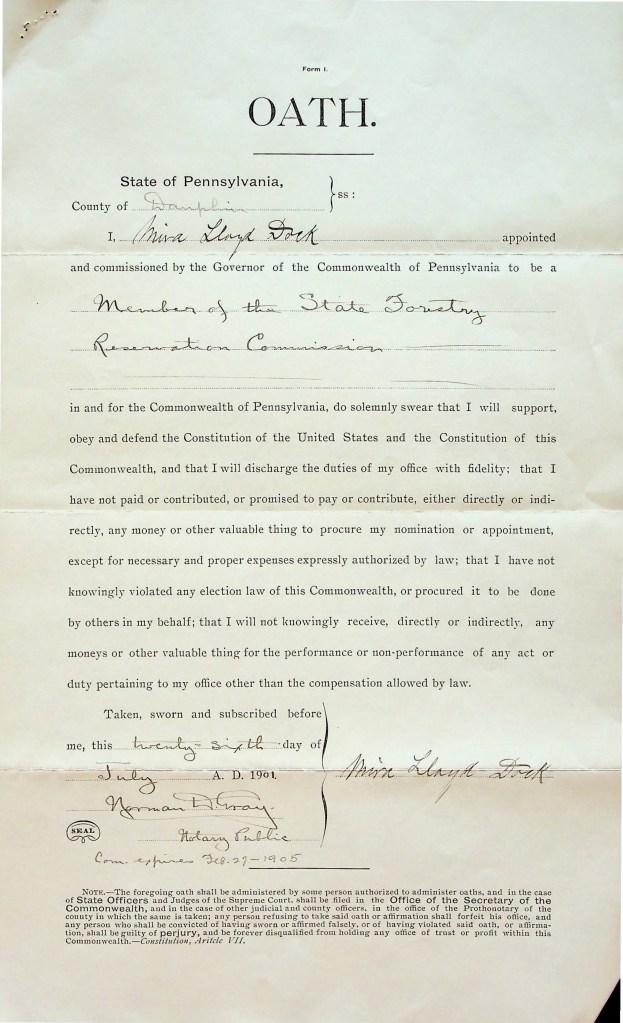 Form I.
OATH.
State of Pennsylvania,
County of Dauphin } ss:
I, Mira Lloyd Dock appointed
and commissioned by the Governor of the Commonwealth of Pennsylvania to be a
Member of the State Forestry
Reservation Commission
in and for the Commonwealth of Pennsylvania, do solemnly swear that I will support,
obey and defend the Constitution of the United States and the Constitution of this
Commonwealth, and that I will discharge the duties of my office with fidelity; that I
have not paid or contributed, or promised to pay or contribute, either directly or indi-
rectly, any money or other valuable thing to procure my nomination or appointment,
except for necessary and proper expenses expressly authorized by law; that I have not
knowingly violated any election law of this Commonwealth, or procured it to be done
by others in my behalf; that I will not knowingly receive, directly or indirectly, any
moneys or other valuable thing for the performance or non-performance of any act or
duty pertaining to my office other than the compensation allowed by law.
Taken, sworn and subscribed before
me, this twenty-sixth day of
July A. D. 1901.
Mira Lloyd Dock
Norman D. Gray.
SEAL
Notary Public
Com. expires Feb. 27-1905
NOTE.—The foregoing oath shall be administered by some person authorized to administer oaths, and in the case
of State Officers and Judges of the Supreme Court, shall be filed in the Office of the Secretary of the
Commonwealth, and in the case of other judicial and county officers, in the office of the Prothonotary of the
county in which the same is taken; any person refusing to take said oath or affirmation shall forfeit his office, and
any person who shall be convicted of having sworn or affirmed falsely, or of having violated said oath, or affirma-
tion, shall be guilty of perjury, and be forever disqualified from holding any office of trust or profit within this
Commonwealth.—Constitution, Aritcle VII.